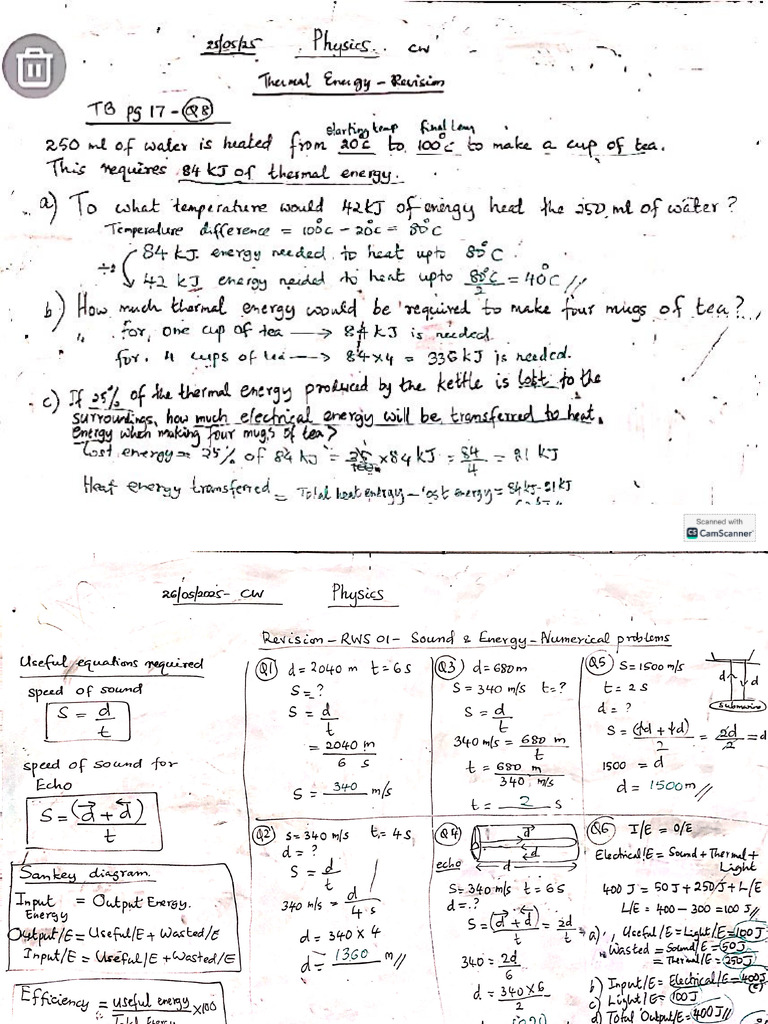 25/05/25 Physics CW
Thermal Energy - Revision
TB pg 17 - Q8
starting temp final tem
250 ml of water is heated from 20°C to 100°C to make a cup of tea.
This requires 84 kJ of thermal energy.
a) To what temperature would 42kJ of energy heat the 250 ml of water?
Temperature difference = 100°C - 20°C = 80°C
84 kJ energy needed to heat upto 80°C
÷2 42 kJ energy needed to heat upto 80°C/2 = 40°C //
b) How much thermal energy would be required to make four mugs of tea?
for, one cup of tea → 84 kJ is needed
for. 4 cups of tea → 84x4 = 336 kJ is needed.
c) If 25% of the thermal energy produced by the kettle is lost to the
surroundings, how much electrical energy will be transferred to heat.
Energy when making four mugs of tea?
Lost energy = 25% of 84 kJ = 25/100 x 84 kJ = 84/4 = 21 kJ
Heat energy transferred = Total heat energy - lost energy = 84 kJ - 21 kJ
Scanned with
CS CamScanner
26/05/2025 - CW Physics
Revision - RWS 01 - Sound & Energy - Numerical problems
Useful equations required
speed of sound
S = d/t
speed of sound for
Echo
S = (d + d)/t
Sankey diagram.
Input Energy = Output Energy.
Output/E = Useful/E + Wasted/E
Input/E = Useful/E + Wasted/E
Efficiency = useful energy/Total Energy x100
Q1 d = 2040 m t = 6 s
S = ?
S = d/t
= 2040 m/6 s
S = 340 m/s
Q2 S = 340 m/s t = 4 s
d = ?
S = d/t
340 m/s = d/4 s
d = 340 x 4
d = 1360 m //
Q3 d = 680m
S = 340 m/s t = ?
S = d/t
340 m/s = 680 m/t
t = 680 m/340 m/s
t = 2 s
Q4 d
d
echo d
S = 340 m/s t = 6 s
d = ?
S = (d + d)/t = 2d/t
340 = 2d/6
d = 340 x 6/2
1020
Q5 S = 1500 m/s
t = 2 s d d
d = ? submarine
S = (d + d)/2 = 2d/2 = d
1500 = d
d = 1500m //
Q6 I/E = O/E
Electrical/E = Sound + Thermal +
Light
400 J = 50J + 250J + L/E
L/E = 400 - 300 = 100J //
a) Useful/E = Light/E = 100J
Wasted = Sound/E = 50J
= Thermal/E = 250J
b) Input/E = Electrical/E = 400J
c) Light/E = 100J
d) Total Output/E = 400J //